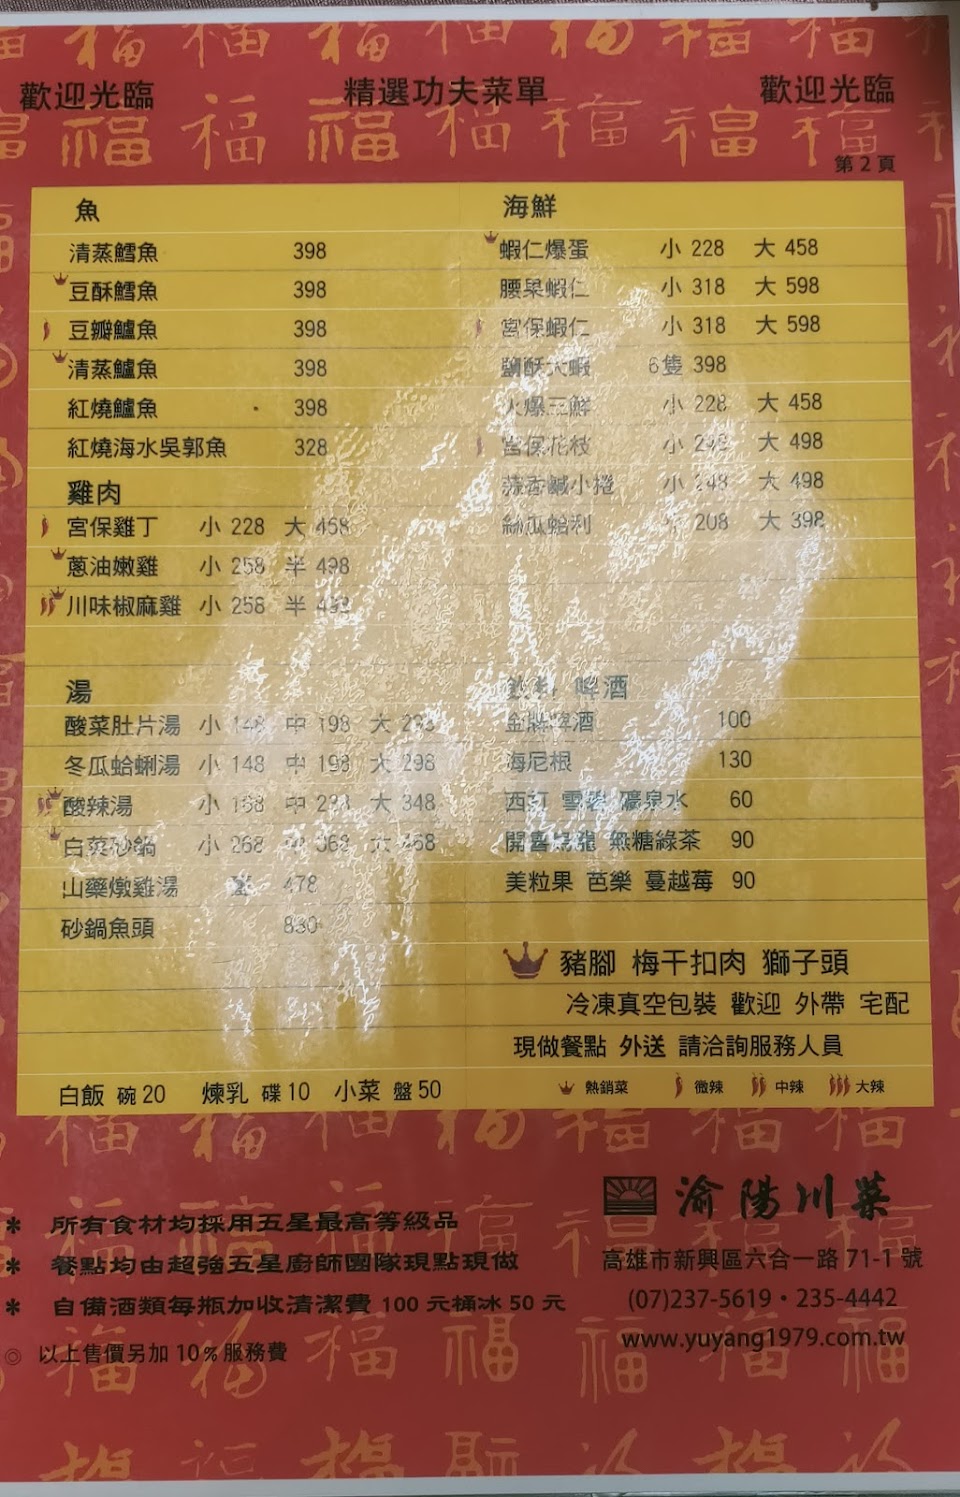 歡迎光臨 精選功夫菜單 歡迎光臨
第2頁
魚
清蒸鱈魚 398
豆酥鱈魚 398
豆瓣鱸魚 398
清蒸鱸魚 398
紅燒鱸魚 398
紅燒海水吳郭魚 328
雞肉
宮保雞丁 小 228 大 458
蔥油嫩雞 小 258 半 498
川味椒麻雞 小 258 半
湯
酸菜肚片湯 小 148 中 198 大
冬瓜蛤蜊湯 小 148 中 198 大 298
酸辣湯 小 中 大 348
白菜砂鍋 小 268 368 大 468
山藥燉雞湯 478
砂鍋魚頭
海鮮
蝦仁爆蛋 小 228 大 458
腰果蝦仁 小 318 大 598
宮保蝦仁 小 318 大 598
鹽酥大蝦 6隻 398
火爆三鮮 小 228 大 458
宮保花枝 小 大 498
蒜香鹹小捲 小 248 大 498
絲瓜蛤利 208 大 398
飲料 啤酒
金牌啤酒 100
海尼根 130
西打 雪碧 礦泉水 60
開喜烏龍 無糖綠茶 90
美粒果 芭樂 蔓越莓 90
豬腳 梅干扣肉 獅子頭
冷凍真空包裝 歡迎 外帶 宅配
現做餐點 外送 請洽詢服務人員
熱銷菜 微辣 中辣 大辣
白飯 碗20 煉乳 碟10 小菜 盤50
* 所有食材均採用五星最高等級品
* 餐點均由超強五星廚師團隊現點現做
* 自備酒類每瓶加收清潔費100元桶冰50元
◎ 以上售價另加10%服務費
渝陽川菜
高雄市新興區六合一路71-1號
(07)237-5619・235-4442
www.yuyang1979.com.tw